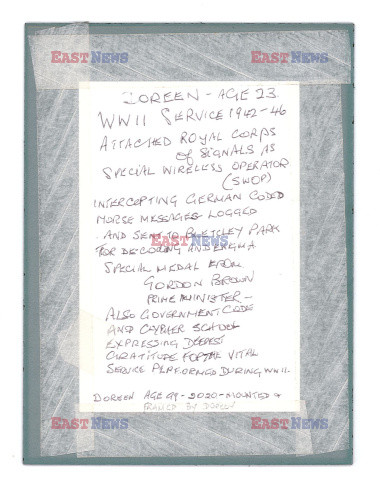 EAST NEWS EAST NEWS
DOREEN - AGE 23
WWII SERVICE 1942-46
ATTACHED ROYAL CORPS
OF SIGNALS AS
SPECIAL WIRELESS OPERATOR
(SWOP)
INTERCEPTING GERMAN CODED
MORSE MESSAGES LOGGED
AND SENT TO BLETCHLEY PARK
EAST NEWS
FOR DECODING
SPECIAL MEDAL FROM
GORDON BROWN
PRIME MINISTER -
ALSO GOVERNMENT CODE
AND CYPHER SCHOOL
EXPRESSING DEEPEST
GRATITUDE FOR THE VITAL
SERVICE DURING WWII.
DOREEN AGE 99 - 2020 - MOUNTED &
FRAMED BY
EAST NEWS EAST NEWS